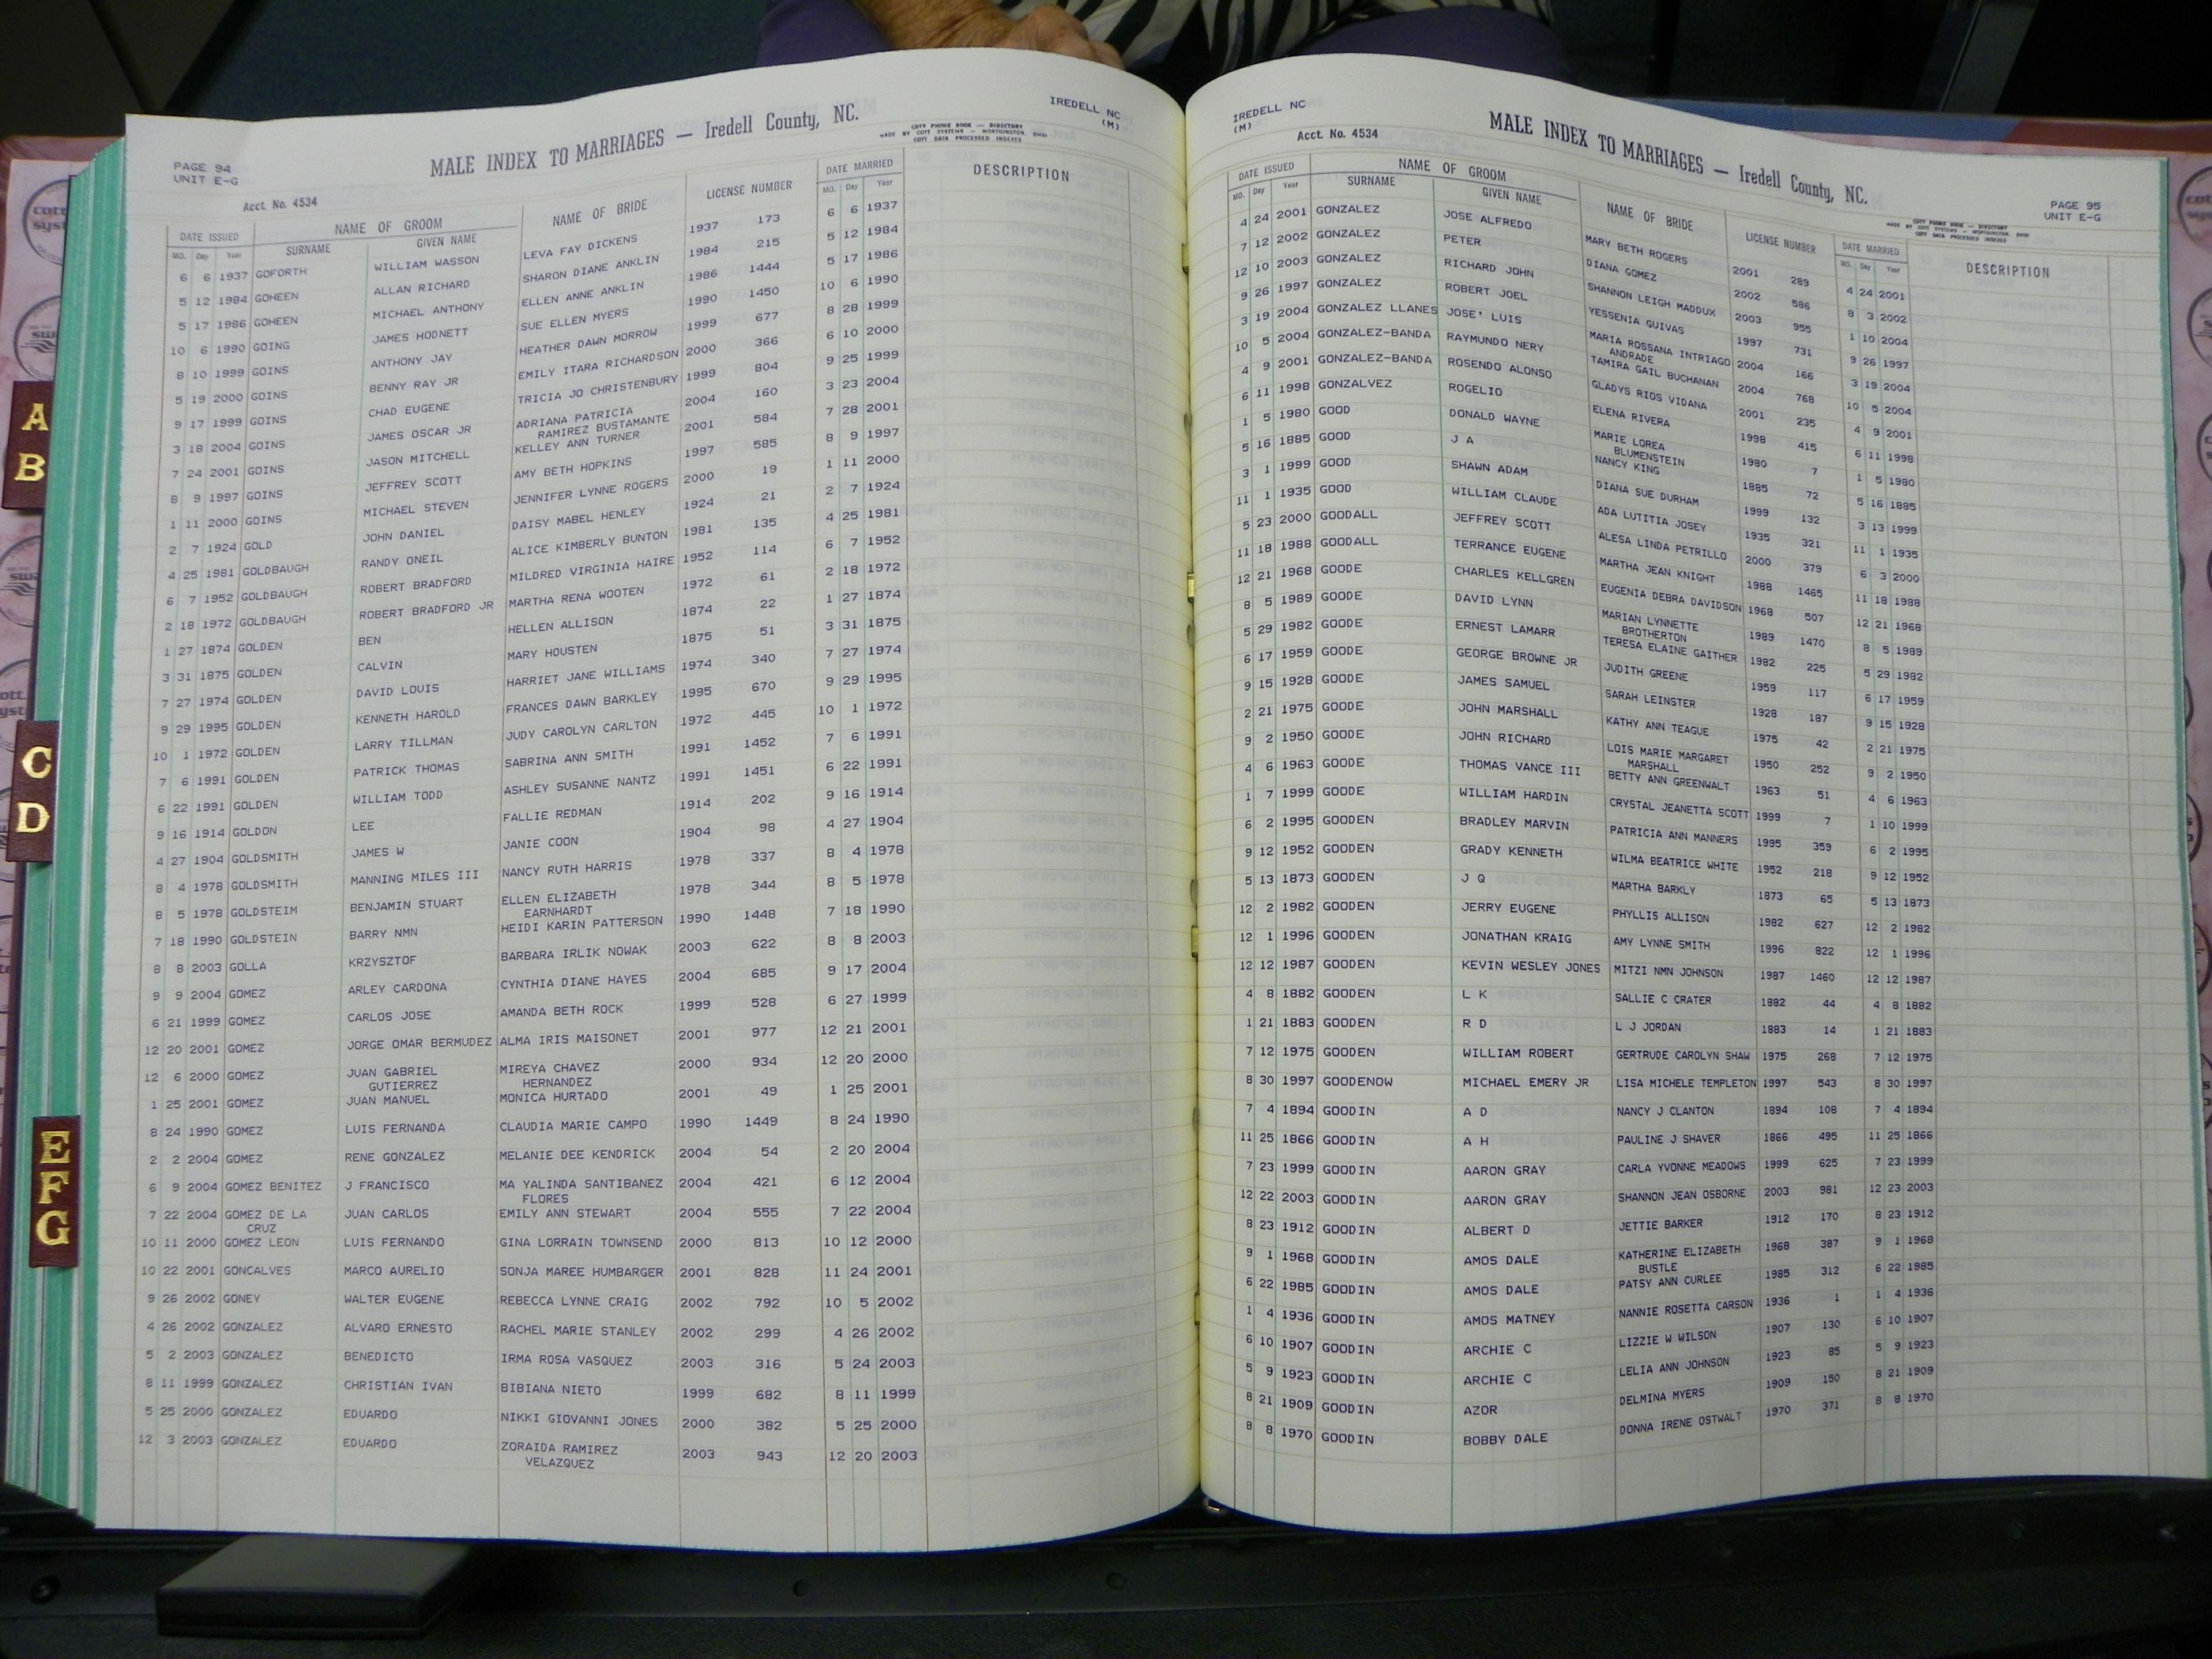 A
B
C
D
E
F
G
PAGE 94
UNIT E-G
Acct. No. 4534
MALE INDEX TO MARRIAGES — Iredell County, NC.
IREDELL NC
(M)
COTT PHONE BOOK — DIRECTORY
MADE BY COTT SYSTEMS — WORTHINGTON, OHIO
COTT DATA PROCESSED INDEXES
DATE ISSUED NAME OF GROOM NAME OF BRIDE LICENSE NUMBER DATE MARRIED DESCRIPTION
MO. Day Year SURNAME GIVEN NAME MO. Day Year
6 6 1937 GOFORTH WILLIAM WASSON LEVA FAY DICKENS 1937 173 6 6 1937
5 12 1984 GOHEEN ALLAN RICHARD SHARON DIANE ANKLIN 1984 215 5 12 1984
5 17 1986 GOHEEN MICHAEL ANTHONY ELLEN ANNE ANKLIN 1986 1444 5 17 1986
10 6 1990 GOING JAMES HODNETT SUE ELLEN MYERS 1990 1450 10 6 1990
8 10 1999 GOINS ANTHONY JAY HEATHER DAWN MORROW 1999 677 8 28 1999
5 19 2000 GOINS BENNY RAY JR EMILY ITARA RICHARDSON 2000 366 6 10 2000
9 17 1999 GOINS CHAD EUGENE TRICIA JO CHRISTENBURY 1999 804 9 25 1999
3 18 2004 GOINS JAMES OSCAR JR ADRIANA PATRICIA 2004 160 3 23 2004
RAMIREZ BUSTAMANTE
7 24 2001 GOINS JASON MITCHELL KELLEY ANN TURNER 2001 584 7 28 2001
8 9 1997 GOINS JEFFREY SCOTT AMY BETH HOPKINS 1997 585 8 9 1997
1 11 2000 GOINS MICHAEL STEVEN JENNIFER LYNNE ROGERS 2000 19 1 11 2000
2 7 1924 GOLD JOHN DANIEL DAISY MABEL HENLEY 1924 21 2 7 1924
4 25 1981 GOLDBAUGH RANDY ONEIL ALICE KIMBERLY BUNTON 1981 135 4 25 1981
6 7 1952 GOLDBAUGH ROBERT BRADFORD MILDRED VIRGINIA HAIRE 1952 114 6 7 1952
2 18 1972 GOLDBAUGH ROBERT BRADFORD JR MARTHA RENA WOOTEN 1972 61 2 18 1972
1 27 1874 GOLDEN BEN HELLEN ALLISON 1874 22 1 27 1874
3 31 1875 GOLDEN CALVIN MARY HOUSTEN 1875 51 3 31 1875
7 27 1974 GOLDEN DAVID LOUIS HARRIET JANE WILLIAMS 1974 340 7 27 1974
9 29 1995 GOLDEN KENNETH HAROLD FRANCES DAWN BARKLEY 1995 670 9 29 1995
10 1 1972 GOLDEN LARRY TILLMAN JUDY CAROLYN CARLTON 1972 445 10 1 1972
7 6 1991 GOLDEN PATRICK THOMAS SABRINA ANN SMITH 1991 1452 7 6 1991
6 22 1991 GOLDEN WILLIAM TODD ASHLEY SUSANNE NANTZ 1991 1451 6 22 1991
9 16 1914 GOLDON LEE FALLIE REDMAN 1914 202 9 16 1914
4 27 1904 GOLDSMITH JAMES W JANIE COON 1904 98 4 27 1904
8 4 1978 GOLDSMITH MANNING MILES III NANCY RUTH HARRIS 1978 337 8 4 1978
8 5 1978 GOLDSTEIM BENJAMIN STUART ELLEN ELIZABETH 1978 344 8 5 1978
EARNHARDT
7 18 1990 GOLDSTEIN BARRY NMN HEIDI KARIN PATTERSON 1990 1448 7 18 1990
8 8 2003 GOLLA KRZYSZTOF BARBARA IRLIK NOWAK 2003 622 8 8 2003
9 9 2004 GOMEZ ARLEY CARDONA CYNTHIA DIANE HAYES 2004 685 9 17 2004
6 21 1999 GOMEZ CARLOS JOSE AMANDA BETH ROCK 1999 528 6 27 1999
12 20 2001 GOMEZ JORGE OMAR BERMUDEZ ALMA IRIS MAISONET 2001 977 12 21 2001
12 6 2000 GOMEZ JUAN GABRIEL MIREYA CHAVEZ 2000 934 12 20 2000
GUTIERREZ HERNANDEZ
1 25 2001 GOMEZ JUAN MANUEL MONICA HURTADO 2001 49 1 25 2001
8 24 1990 GOMEZ LUIS FERNANDA CLAUDIA MARIE CAMPO 1990 1449 8 24 1990
2 2 2004 GOMEZ RENE GONZALEZ MELANIE DEE KENDRICK 2004 54 2 20 2004
6 9 2004 GOMEZ BENITEZ J FRANCISCO MA YALINDA SANTIBANEZ 2004 421 6 12 2004
FLORES
7 22 2004 GOMEZ DE LA JUAN CARLOS EMILY ANN STEWART 2004 555 7 22 2004
CRUZ
10 11 2000 GOMEZ LEON LUIS FERNANDO GINA LORRAIN TOWNSEND 2000 813 10 12 2000
10 22 2001 GONCALVES MARCO AURELIO SONJA MAREE HUMBARGER 2001 828 11 24 2001
9 26 2002 GONEY WALTER EUGENE REBECCA LYNNE CRAIG 2002 792 10 5 2002
4 26 2002 GONZALEZ ALVARO ERNESTO RACHEL MARIE STANLEY 2002 299 4 26 2002
5 2 2003 GONZALEZ BENEDICTO IRMA ROSA VASQUEZ 2003 316 5 24 2003
8 11 1999 GONZALEZ CHRISTIAN IVAN BIBIANA NIETO 1999 682 8 11 1999
5 25 2000 GONZALEZ EDUARDO NIKKI GIOVANNI JONES 2000 382 5 25 2000
12 3 2003 GONZALEZ EDUARDO ZORAIDA RAMIREZ 2003 943 12 20 2003
VELAZQUEZ
IREDELL NC
(M)
Acct. No. 4534
MALE INDEX TO MARRIAGES — Iredell County, NC.
PAGE 95
UNIT E-G
COTT PHONE BOOK — DIRECTORY
MADE BY COTT SYSTEMS — WORTHINGTON, OHIO
COTT DATA PROCESSED INDEXES
DATE ISSUED NAME OF GROOM NAME OF BRIDE LICENSE NUMBER DATE MARRIED DESCRIPTION
MO. Day Year SURNAME GIVEN NAME MO. Day Year
4 24 2001 GONZALEZ JOSE ALFREDO MARY BETH ROGERS 2001 289 4 24 2001
7 12 2002 GONZALEZ PETER DIANA GOMEZ 2002 586 8 3 2002
12 10 2003 GONZALEZ RICHARD JOHN SHANNON LEIGH MADDUX 2003 955 1 10 2004
9 26 1997 GONZALEZ ROBERT JOEL YESSENIA GUIVAS 1997 731 9 26 1997
3 19 2004 GONZALEZ LLANES JOSE' LUIS MARIA ROSSANA INTRIAGO 2004 166 3 19 2004
ANDRADE
10 5 2004 GONZALEZ-BANDA RAYMUNDO NERY TAMIRA GAIL BUCHANAN 2004 768 10 5 2004
4 9 2001 GONZALEZ-BANDA ROSENDO ALONSO GLADYS RIOS VIDANA 2001 235 4 9 2001
6 11 1998 GONZALVEZ ROGELIO ELENA RIVERA 1998 415 6 11 1998
1 5 1980 GOOD DONALD WAYNE MARIE LOREA 1980 7 1 5 1980
BLUMENSTEIN
5 16 1885 GOOD J A NANCY KING 1885 72 5 16 1885
3 1 1999 GOOD SHAWN ADAM DIANA SUE DURHAM 1999 132 3 13 1999
11 1 1935 GOOD WILLIAM CLAUDE ADA LUTITIA JOSEY 1935 321 11 1 1935
5 23 2000 GOODALL JEFFREY SCOTT ALESA LINDA PETRILLO 2000 379 6 3 2000
11 18 1988 GOODALL TERRANCE EUGENE MARTHA JEAN KNIGHT 1988 1465 11 18 1988
12 21 1968 GOODE CHARLES KELLGREN EUGENIA DEBRA DAVIDSON 1968 507 12 21 1968
8 5 1989 GOODE DAVID LYNN MARIAN LYNNETTE 1989 1470 8 5 1989
BROTHERTON
5 29 1982 GOODE ERNEST LAMARR TERESA ELAINE GAITHER 1982 225 5 29 1982
6 17 1959 GOODE GEORGE BROWNE JR JUDITH GREENE 1959 117 6 17 1959
9 15 1928 GOODE JAMES SAMUEL SARAH LEINSTER 1928 187 9 15 1928
2 21 1975 GOODE JOHN MARSHALL KATHY ANN TEAGUE 1975 42 2 21 1975
9 2 1950 GOODE JOHN RICHARD LOIS MARIE MARGARET 1950 252 9 2 1950
MARSHALL
4 6 1963 GOODE THOMAS VANCE III BETTY ANN GREENWALT 1963 51 4 6 1963
1 7 1999 GOODE WILLIAM HARDIN CRYSTAL JEANETTA SCOTT 1999 7 1 10 1999
6 2 1995 GOODEN BRADLEY MARVIN PATRICIA ANN MANNERS 1995 359 6 2 1995
9 12 1952 GOODEN GRADY KENNETH WILMA BEATRICE WHITE 1952 218 9 12 1952
5 13 1873 GOODEN J Q MARTHA BARKLY 1873 65 5 13 1873
12 2 1982 GOODEN JERRY EUGENE PHYLLIS ALLISON 1982 627 12 2 1982
12 1 1996 GOODEN JONATHAN KRAIG AMY LYNNE SMITH 1996 822 12 1 1996
12 12 1987 GOODEN KEVIN WESLEY JONES MITZI NMN JOHNSON 1987 1460 12 12 1987
4 8 1882 GOODEN L K SALLIE C CRATER 1882 44 4 8 1882
1 21 1883 GOODEN R D L J JORDAN 1883 14 1 21 1883
7 12 1975 GOODEN WILLIAM ROBERT GERTRUDE CAROLYN SHAW 1975 268 7 12 1975
8 30 1997 GOODENOW MICHAEL EMERY JR LISA MICHELE TEMPLETON 1997 543 8 30 1997
7 4 1894 GOODIN A D NANCY J CLANTON 1894 108 7 4 1894
11 25 1866 GOODIN A H PAULINE J SHAVER 1866 495 11 25 1866
7 23 1999 GOODIN AARON GRAY CARLA YVONNE MEADOWS 1999 625 7 23 1999
12 22 2003 GOODIN AARON GRAY SHANNON JEAN OSBORNE 2003 981 12 23 2003
8 23 1912 GOODIN ALBERT D JETTIE BARKER 1912 170 8 23 1912
9 1 1968 GOODIN AMOS DALE KATHERINE ELIZABETH 1968 387 9 1 1968
BUSTLE
6 22 1985 GOODIN AMOS DALE PATSY ANN CURLEE 1985 312 6 22 1985
1 4 1936 GOODIN AMOS MATNEY NANNIE ROSETTA CARSON 1936 1 1 4 1936
6 10 1907 GOODIN ARCHIE C LIZZIE W WILSON 1907 130 6 10 1907
5 9 1923 GOODIN ARCHIE C LELIA ANN JOHNSON 1923 85 5 9 1923
8 21 1909 GOODIN AZOR DELMINA MYERS 1909 150 8 21 1909
8 8 1970 GOODIN BOBBY DALE DONNA IRENE OSTWALT 1970 371 8 8 1970